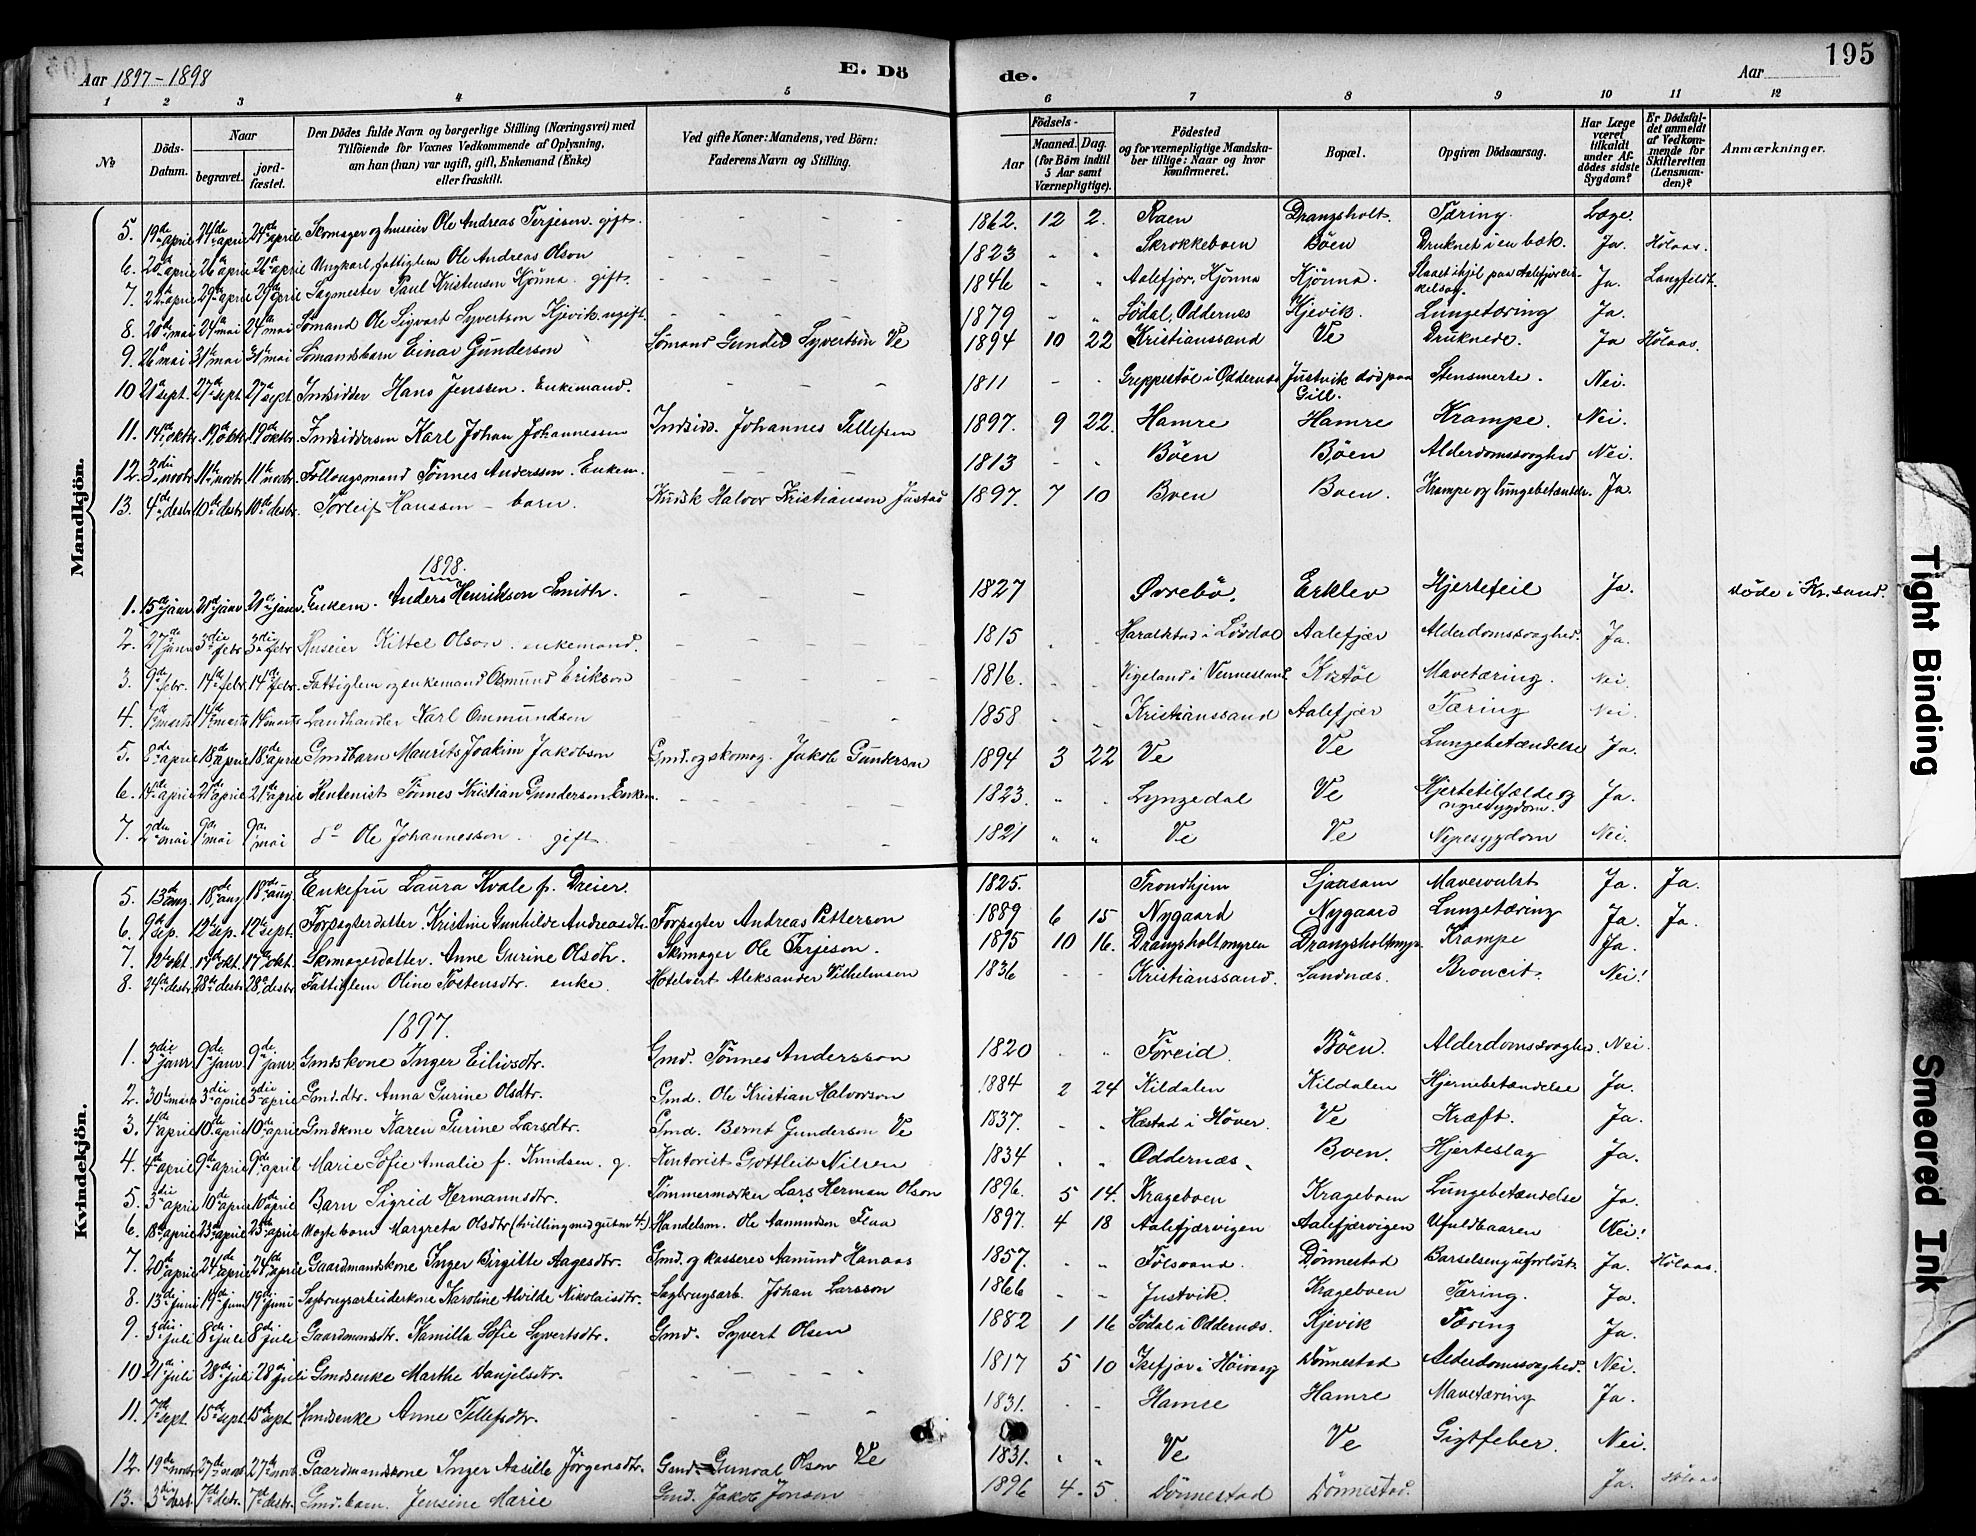 Aar 1897-1898
E. Dö
de.
Aar
195
1 2 3 4 5 6 7 8 9 10 11 12
№
Döds-Datum.
Naar
begravet.
jord-fæstet.
Den Dödes fulde Navn og borgerlige Stilling (Næringsvei) med
Tilföiende for Voxnes Vedkommende af Oplysning,
om han (hun) var ugift, gift, Enkemand (Enke)
eller fraskilt.
Ved gifte Koner: Mandens, ved Börn:
Faderens Navn og Stilling.
Födsels-
Aar
Maaned. (for Börn indtil 5 Aar samt Værnepligtige).
Dag.
Födested
og for værnepligtige Mandska-
ber tillige: Naar og hvor
konfirmeret.
Bopæl.
Opgiven Dödsaarsag.
Har Læge været tilkaldt under Af-dødes sidste Sygdom?
Er Dödsfal-det anmeldt af Vedkom-mende for Skifteretten (Lensman-den)?
Anmærkninger.
Mandkjön.
5. 19de april 24de april 24de april Skomager og huseier Ole Andreas Terjesen. gift. - - - 1862. 12 2. Raen Drangsholt. Tæring. Læge.
6. 20de april 26a april 26a april Ungkarl, fattiglem Ole Andreas Olson - - - 1823 - - Skrokkeboen Böen Druknet i en bæk. Ja. Hölaas.
7. 22de april 29de april 29de april Sagmester Paul Kristensen Kjönna. gift. - - - 1846 - - Aalefjær, Kjönna Kjönna. Slaaet ihjel paa Aalefjær cir-kelsag. Ja. Langfeldt.
8. 20de mai 24a mai 24a mai Sömand Ole Sigvart Syvertson Kjevik. ugift. - - - 1879 - - Södal, Oddernes Kjevik. Lungetæring Ja.
9. 26a mai 31te mai 31te mai Sömandsbarn Einar Gunderson Sömand Gunder Syvertson Ve 1894 10 22 Kristianssand Ve Druknede. Ja Hölaas.
10 21a sept. 27a sept 27a sept. Indsidder Hans Jensen. Enkemand. - - - 1811 - - Greppestöl i Oddernes Justvik död paa Gill. Stensmerte. Nei.
11. 14de oktr. 19de oktr. 19de oktr Indsidderson Karl Johan Johannessen Indsids. Johannes Tellefsen 1897. 9 22. Hamre Hamre Krampe. Nei.
12. 3die novbr 11te novbr. 11te novbr Follaugsmand Tönnes Andersson. Enkem. - - - 1813 - - Böen Böen Alderdomssvaghed Nei.
13. 4de desbr 10de desbr 10de desbr. Torleif Hanssen - barn. Kudsk Halvor Kristianson Justad 1897. 7 10 Boen Boen. Krampe og lungebetændr. Ja.
1898.
1. 15de janr 21de janr 21a janr. Enkem. Anders Henrikson Smith. - - - 1827 Øvrebö. Erklev Hjertefeil Ja. döde i Kr.sand.
2. 27de janr 3die febr 3die febr Huseier Kittel Olson. enkemand. - - - 1815 - - Haraldstad i Lövdal Aalefjær Alderdomssvaghed. Ja.
3. 9de febr. 14de febr 14de febr. Fattiglem og enkemand Osmund Erikson - - - 1816. - - Vigeland i Vennesland Kostöl Mavetæring. Nei.
4. 7de marts 14de marts 14de marts Landhandler Karl Ommundsen - - - 1858 - - Kristianssand Aalefjær Tæring Nei.
5. 8de april 18de april 18de april Gmdbarn Maurits Joakim Jakobson Gmd. og skomag. Jakob Gunderson 1894 3 22 Ve Ve Lungebetændelse Ja.
6. 14de april 21de april 21de april Rentenist Tönnes Kristian Gunderson Enkem. - - - 1823. - - Lyngedal Ve Hjertetilfælde og nyresygdom. Ja.
7. 2den mai 9a mai 9a mai do Ole Johannesson. gift. - - - 1821 - - Ve Ve Nyresygdom Nei.
Kvindekjön.
5. 13de aug. 18de aug 18de aug Enkefru Laura Kvale f. Dreier. 1825. Trondhjem Sjaasam Mavesvulst Ja. Ja.
6. 9de sep. 12te sep. 12te sept. Forpagterdatter. Kristine Gunhilde Andreasdtr. Forpagter Andreas Petterson 1889 6 15 Nygaard Nygaard Lungetæring Ja. Ja.
7. 12te okt. 17de okt. 17de okt. Skomagerdatter. Anne Gurine Olsdtr. Skomager Ole Terjeson. 1895 10 16. Drangsholtmyren Drangsholtmyr. Krampe Ja.
8. 24de desbr 28de desbr 28de desbr. Fattiglem Oline Tostensdtr. enke. Hotelvert Aleksander Vilhelmson 1836 - - Kristianssand. Landnæs. Broncit. Nei!
1897.
1. 3die janr 9de janr 9de janr Gmdskone Inger Eilivsdtr. Gmd. Tönnes Andersson 1820 - - Töreid. Böen. Alderdomssvaghed. Nei.
2. 30te marts 3die april 3die april Gmd.dtr. Anna Gurine Olsdtr. Gmd. Ole Kristian Halvorson 1884 2 24 Kildalen Kildalen Hjernebetændelse Ja.
3. 4de april 10de april 10de april Gmdskone Karen Gurine Larsdtr. Gmd. Bernt Gunderson Ve 1837. - - Hæstad i Höver. Ve Kræft. Ja.
4. 4de april 9de april 9de april Marie Sofie Amalie f. Knudsen. g. Kontorist Gottleib Nilsen 1834 - - Oddernæs. Boen. Hjerteslag Ja.
5. 3die april 10de april 10de april Barn Sigrid Hermannsdtr. Tömmermærker Lars Herman Olson 1896. 5 14. Krageboen Krageboen Lungebetændelse Ja.
6. 18de april 23de april 23de april Uægtebarn Margreta Olsdtr (tvilling med gutten 4.) Handelsm. Ole Aamundson Flaa 1897. 4 18 Aalefjærvigen Aalefjærvigen Ufuldbaaren Nei!
7. 20de april 24de april 24de april Gaardmandskone Inger Birgitte Aagesdtr. Gmd. og kasserer Aamund Hanaas 1857. - - Tolsvand. Dönnestad Barselseng uforlöst. Ja. Hölaas.
8. 13de juni 19de juni 19de juni Sagbrugsarbeiderkone Karoline Alvilde Nikolaisdtr. Sagbrugsarb. Johan Larsson 1866 - - Justvik. Krageboen Tæring. Ja.
9. 3die juli 8de juli 8de juli Gaardmandsdtr. Kamilla Sofie Syvertsdtr. Gmd. Syvert Olsen 1882 1 16 Södal i Oddernæs. Kjevik Tæring Ja.
10. 21de juli 28de juli 28de juli Gmdsenke Marthe Danjelsdtr. - - - 1817 5 10 Isefjær i Höivaag Dönnestad Alderdomssvaghed. Nei.
11. 7de sept. 15de sept 15de sept. Hmdsenke Anne Tellefsdtr. - - - 1831. - - Hamre Hamre Mavetæring Ja.
12. 19de novbr 27de novbr 27de novbr. Gaardmandskone Inger Aasille Jörgensdtr. Gmd. Gunval Olson Ve 1831. - - Ve Ve Gigtfeber. Nei.
13. 3die desbr. 7de desbr. 7de desbr. Gmd.barn. Jensine Marie Gmd. Jakob Jonson 1896 4. 5. Dönnestad Dönnestad. Ja. Hölaas
Tight Binding
Smeared Ink